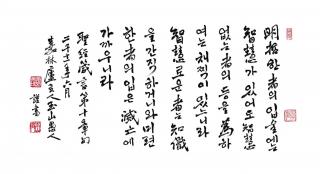 明哲한 者의 입술에는
智慧가 있어도 智慧
없는 者의 등을 爲하
여는 채찍이 있느니라
智慧로운 者는 知識
을 간직하거니와 미련
한 者의 입은 滅亡에
가까우니라
聖經 箴言 第十章의
二千十二年 六月